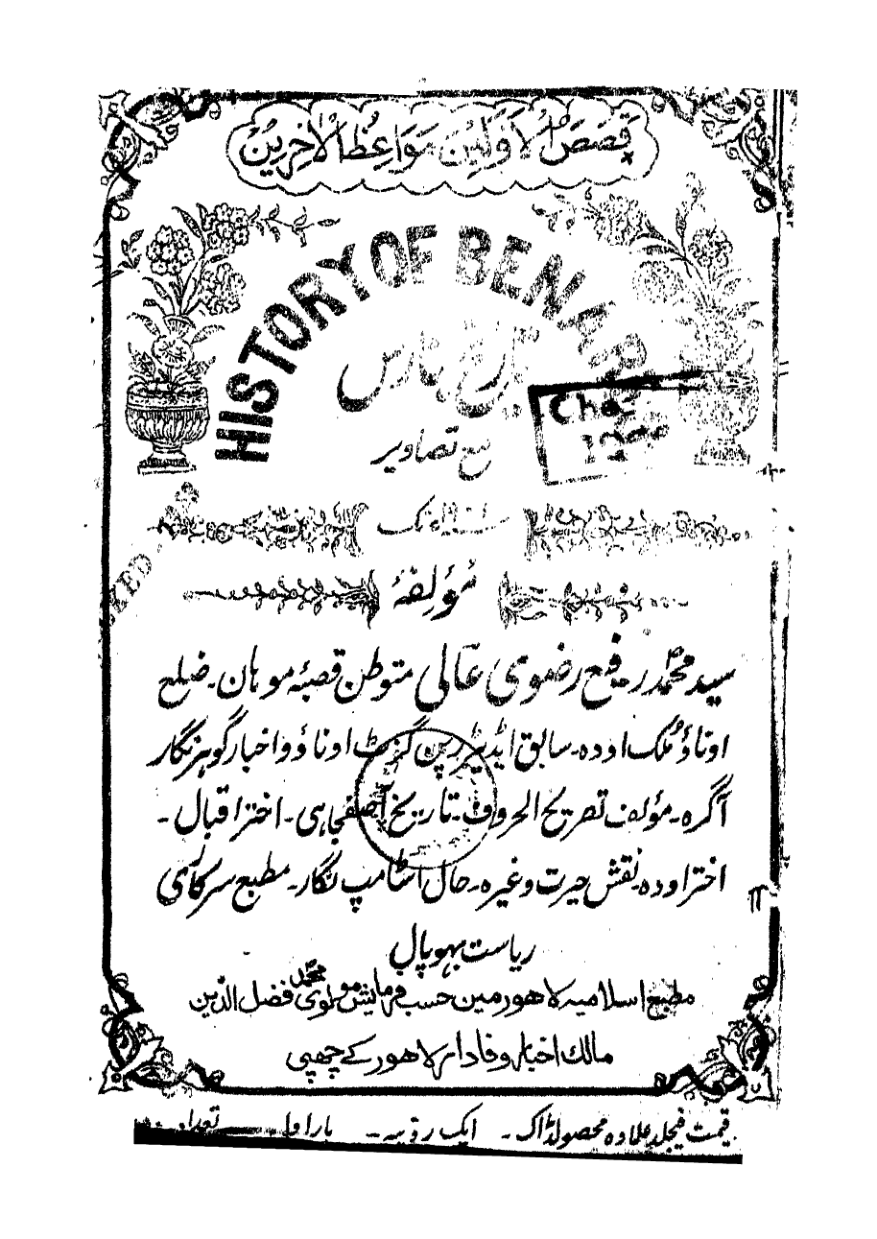 قَصَصُ الْاَوَّلِیْنَ مَوَاعِظُ الْاٰخِرِیْنَ
HISTORY OF BENAR
تاریخ بنارس
مع تصاویر
تک
مؤلفہٗ
سید محمد رفیع رضوی عالی متوطن قصبۂ موہان۔ ضلع
اوناؤ ملک اودہ۔ سابق اڈیٹر رپن گزٹ اوناؤ و اخبار گوہر نگار
آگرہ۔ مؤلف تصریح الحروف۔ تاریخ آصفجاہی۔ اختر اقبال۔
اختر اودہ۔ نقش حیرت وغیرہ۔ حال اسٹامپ نگار۔ مطبع سرکاری
ریاست بہوپال
مطبع اسلامیہ لاھور مین حسب فرمایش مولوی محمد فضل الدّین
مالک اخبار وفادار لاھور کے چھپی
قیمت فیجلد علاوہ محصولڈاک۔ ایک روپیہ۔ بار اول تعداد